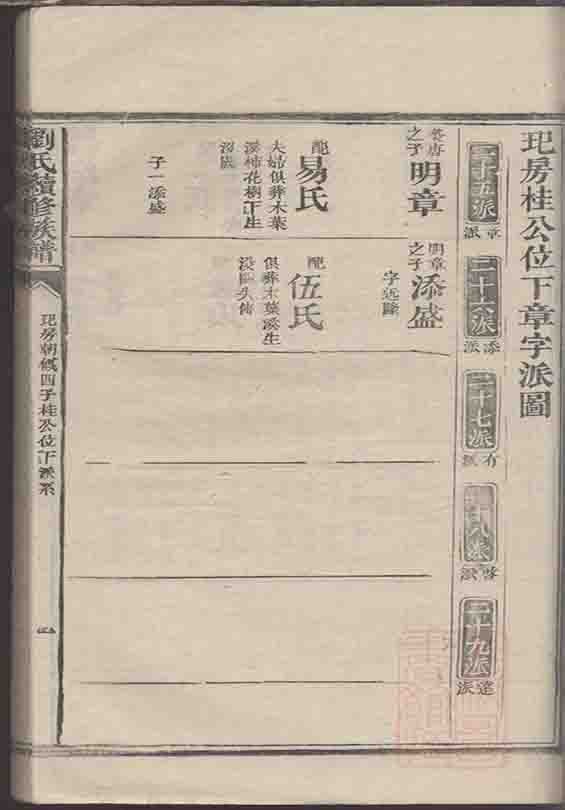 玘房桂公位下章字派圖
二十五派
章派
二十六派
添派
二十七派
有派
十八派
二十九派
達派
之子
明章
配
易氏
夫婦俱葬木葉
溪柿花樹下生
沒闕
子一添盛
明章
之子
添盛
字近隆
配
伍氏
俱葬木葉溪生
劉氏續修族譜
玘房朝
四子桂公位下派系